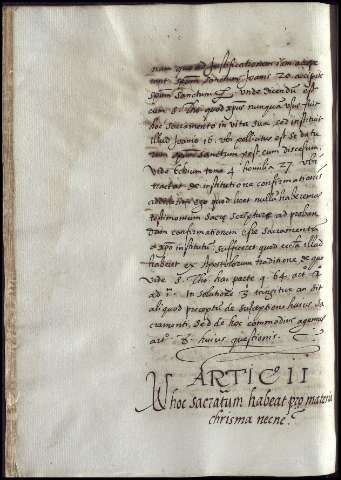 nam quo ad Justificationem iam accepe
runt spum sanctum Joanis 20 accipite
spum sanctum &c. unde dicendu est
cum s. Tho. quod xpus nunqua usus fuit
hoc sacramento in vita sua, sed instituit
illud Joanis 16. ubi pollicitus est se datu
rum spum sanctum post eum discesum,
vide Echium tomo 4 homilia 27 ubi
tractat de institutione confirmationis
ex quo licet nulla habeamus
testimonium sacre scripture ad proban
dam confirmationem esse sacramentu
a xpo institutu, sufficeret quod eccla illud
haberet ex Apostolorum traditione de quo
vide s. Tho. hac parte q. 64. actº 2.
ad 1. In solutione 3 tangitur an sit
aliquod preceptu de susceptione huius sa
cramenti. sed de hoc commodius agemus
artº 8. huius questionis.
ARTIC II
hoc sacratum habeat pro materia
chrisma necne.